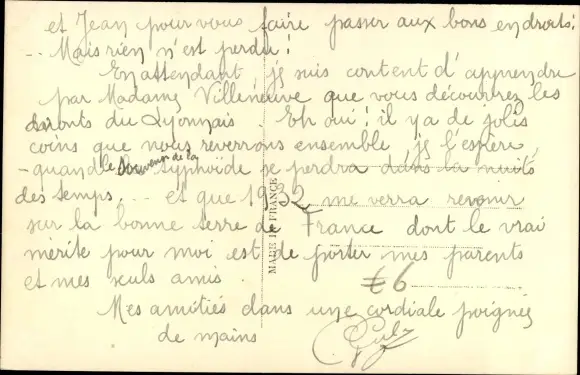 et Jean pour vous faire passer aux bons endroits!
-- Mais rien n'est perdu!
En attendant, je suis content d'apprendre
par Madame Villeneuve que vous découvrez les
monts du Lyonnais. Eh oui! il y a de jolis
coins que nous reverrons ensemble, je l'espère,
- quand le souvenir de la typhoïde se perdra dans la nuits
des temps... et que 1932 me verra revenir
sur la bonne terre de France dont le vrai
mérite pour moi est de porter mes parents
et mes seuls amis.
€6
Mes amitiés dans une cordiale poignée
de mains
MADE IN FRANCE